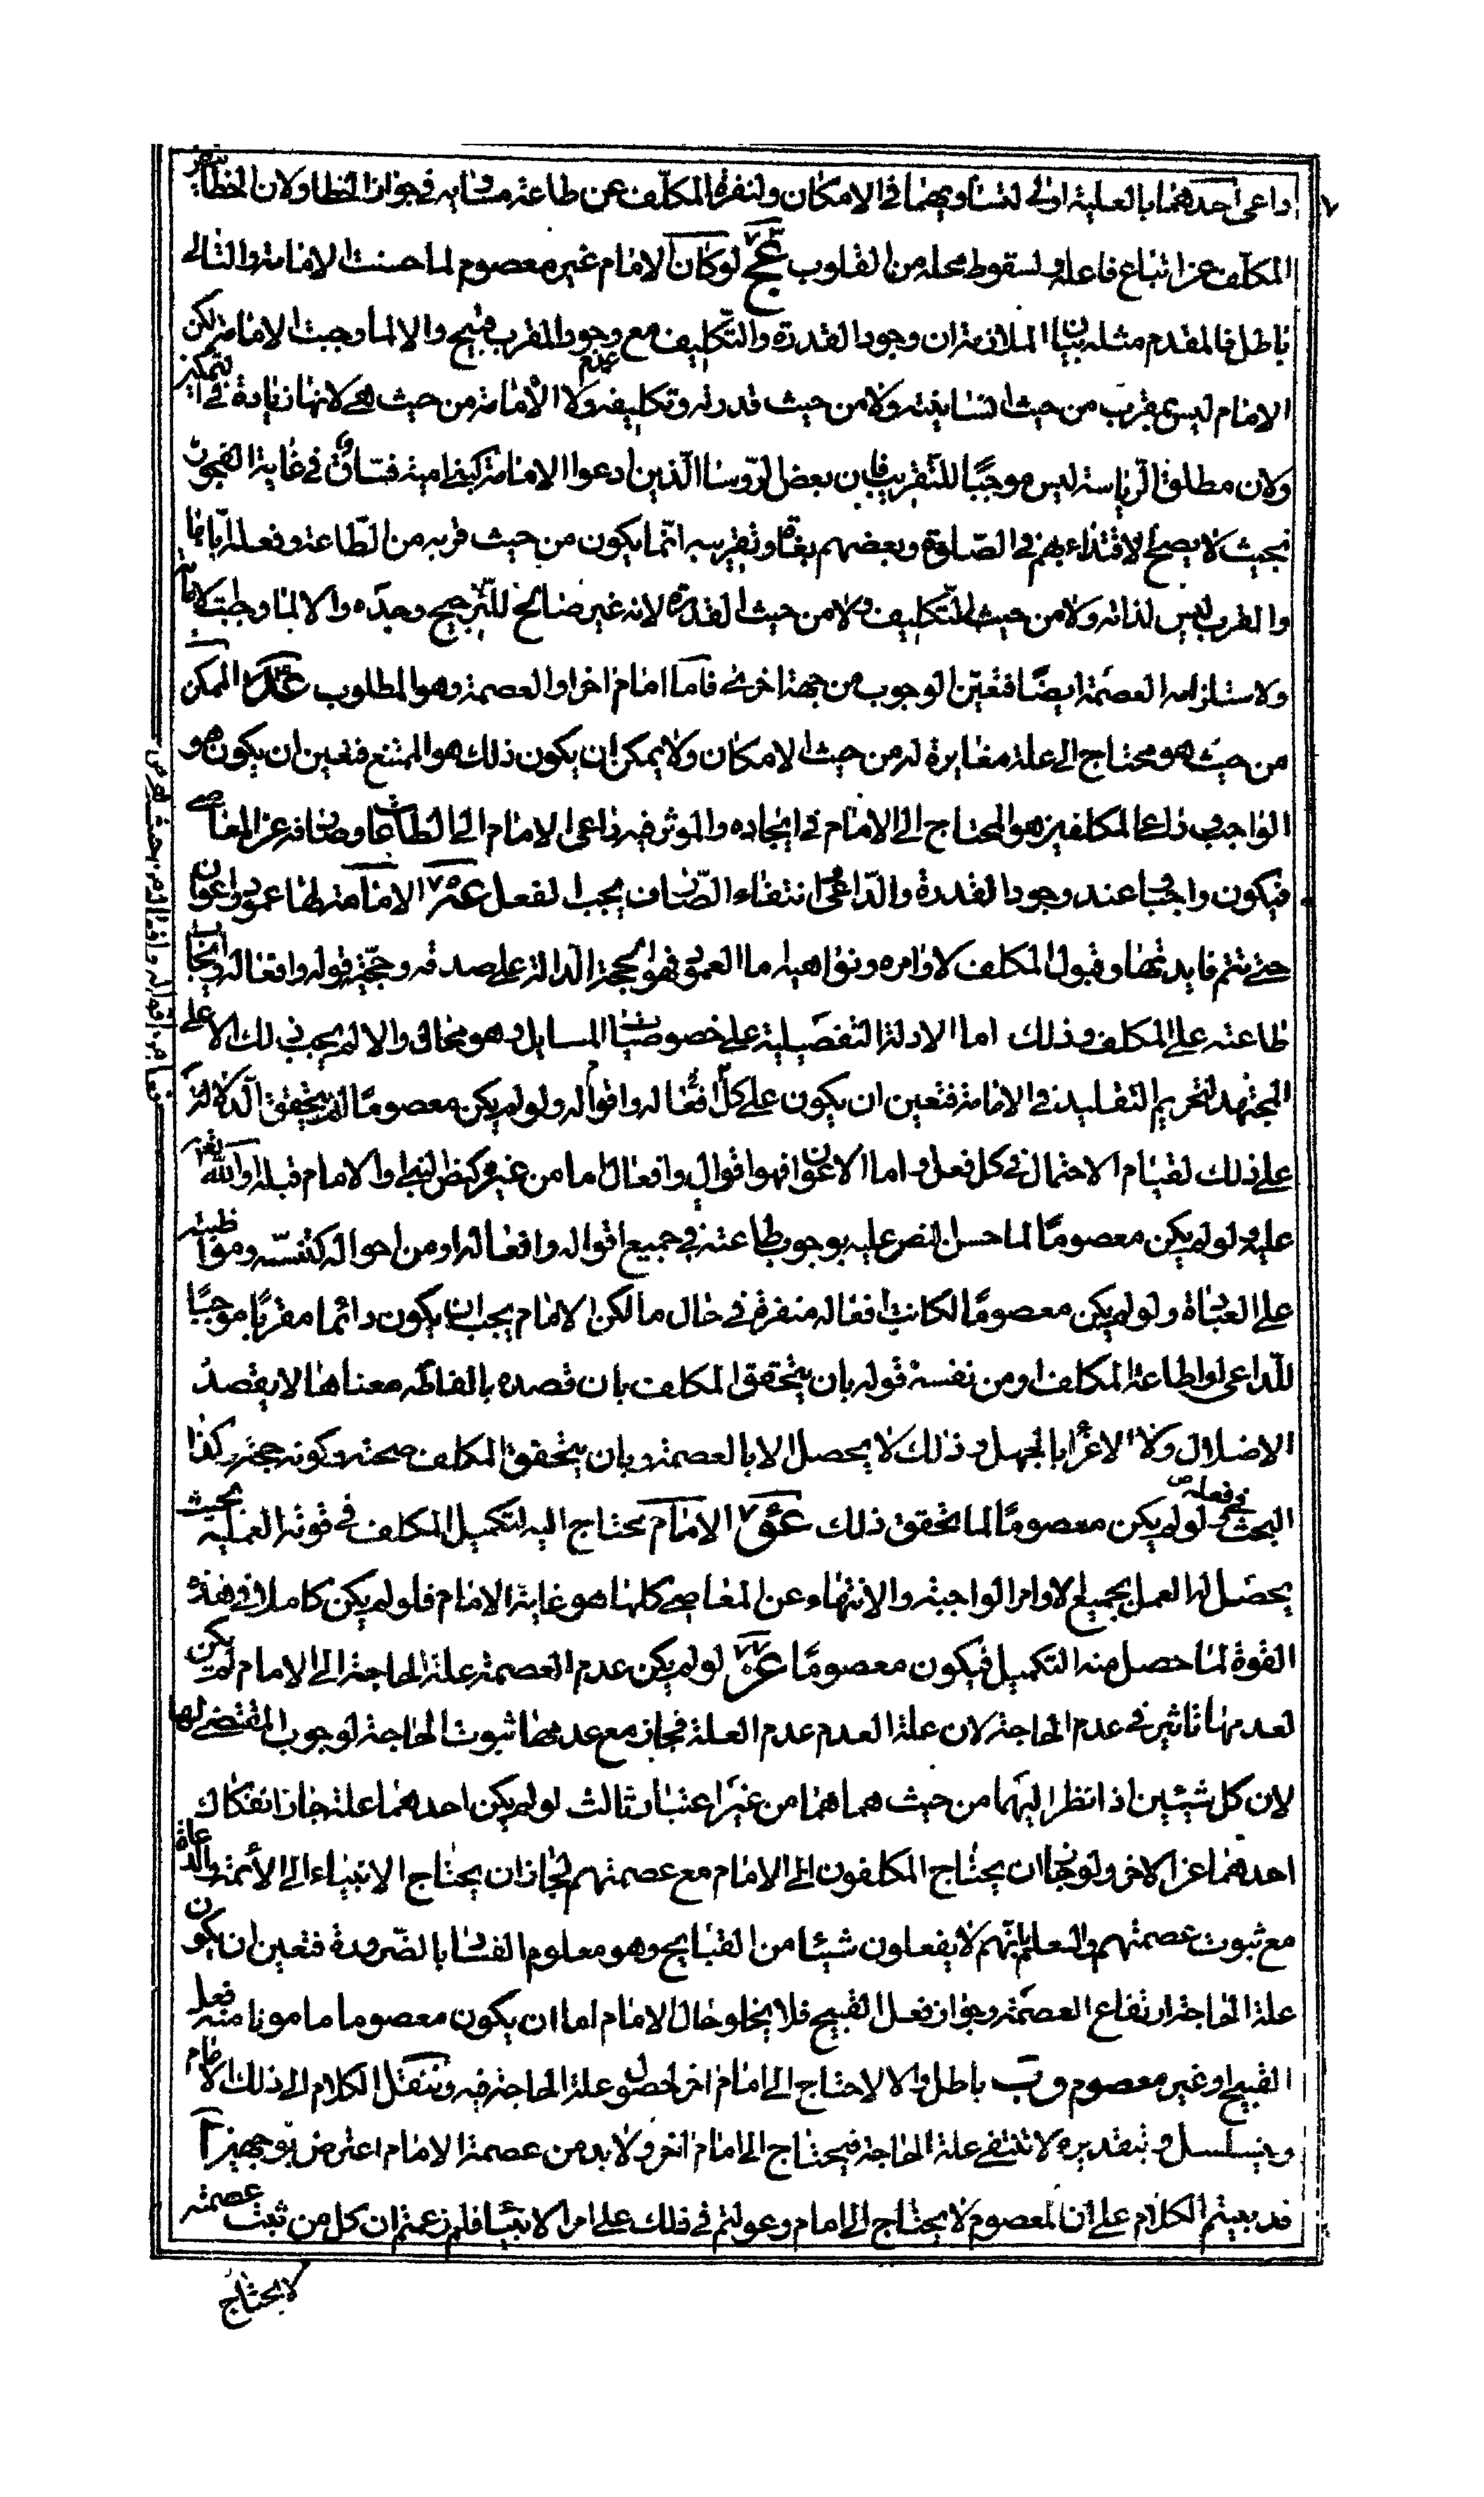 داعى احدهما بالعلية اولى لتساويهما في الامكان ولنفرة المكلّف عن طاعة مساويه في جواز الخطا ولان الخطأ
المكلّف عن اتباع فاعله ولسقوط محله من القلوب عج لو كان الامام غير معصوم لما حسنت الامامة والتالى
باطل فالمقدم مثله بيان الملازمة ان وجود القدرة والتكليف مع وجود المقرب قبيح والا لما وجبت الامامة لكن
الامام ليس بمقرب من حيث انسانيته ولا من حيث قدرته وتكليفه ولا الامامة من حيث هى لانها زيادة في التمكين
ولان مطلق الرياسة ليس موجبًا للتقريب فان بعض الروسا الذين ادعوا الامامة كبنى امية فساق في غاية الفجور
بحيث لا يصح الاقتداء بهم في الصلوة وبعضهم بغاة وتقريبه انما يكون من حيث قربه من الطاعة وفعله اياها
والقرب ليس لذاته ولا من حيث التكليف ولا من حيث القدرة لانه غير صالح للترجيح وحده والا لما وجبت الامامة
ولاستلزامه العصمة ايضًا فتعين الوجوب من جهة اخرى فاما امام اخر او العصمة وهو المطلوب عد الممكن
من حيث هو محتاج الى علة مغايرة له من حيث الامكان ولا يمكن ان يكون ذلك هو الممتنع فتعين ان يكون هو
الواجب داعى المكلفين هو المحتاج الى الامام في ايجاده والموثر فيه داعى الامام الى الطاعات وصارفه عن المعاصى
فيكون واجبا عند وجود القدرة والداعى انتفاء الصارف يجب الفعل عه الامامة لها عمود واعوان
حتى تتم فايدتها وقبول المكلف لاوامره ونواهيه اما العمود فهو الحجة الدالة على صدقه وحجّية قوله وافعاله وايجاب
طاعته على المكلف وذلك اما الادلة التفصيلية على خصوصيات المسايل وهو محال والا لم يجب ذلك الا على
المجتهد لتحريم التقليد في الامامة فتعين ان يكون على كل افعاله واقواله ولو لم يكن معصومًا لم يتحقق الدلالة
على ذلك لقيام الاحتمال في كل فعل واما الاعوان فهو اقوال وافعال اما من غيره كنص النبى والامام قبله او الله تعالى
عليه ولو لم يكن معصومًا لما حسن النص عليه بوجوب طاعته في جميع اقواله وافعاله او من احواله كتنسّكه ومواظبته
على العبادة ولو لم يكن معصومًا لكانت افعاله منفرة في حال ما لكن الامام يجب ان يكون دائما مقربا موجبًا
للداعى او اطاعة المكلف او من نفسه قوله بان يتحقق المكلف بان قصده بالفاظه معناها لا يقصد
الاضلال ولا الاغراء بالجهل وذلك لا يحصل الا بالعصمة وبان يتحقق المكلف صحته وكونه حجة وكذا
البحث في فعله ولو لم يكن معصومًا لما تحقق ذلك عو الامام يحتاج اليه لتكميل المكلف في قوته العملية بحيث
يحصل له العمل بجميع الاوامر الواجبة والانتهاء عن المعاصى كلها هو غاية الامام فلو لم يكن كاملا في هذه
القوة لما حصل منه التكميل فيكون معصومًا عز لو لم يكن عدم العصمة علة الحاجة الى الامام لم يكن
لعدمها تاثير في عدم الحاجة لان علة العدم عدم العلة فجاز مع عدمها ثبوت الحاجة لوجوب المقتضى لها
لان كل شيئين اذا نظر اليهما من حيث هما هما من غير اعتبار ثالث لو لم يكن احدهما علة جاز انفكاك
احدهما عن الاخر ولو جاز ان يحتاج المكلفون الى الامام مع عصمتهم لجاز ان يحتاج الانبياء الى الأئمة والدعاة
مع ثبوت عصمتهم والعلم بانهم لا يفعلون شيئا من القبايح وهو معلوم الفساد بالضرورة فتعين ان يكون
علة الحاجة ارتفاع العصمة وجواز فعل القبيح فلا يخلو حال الامام اما ان يكون معصوما مامونا منه فعل
القبيح او غير معصوم وب باطل والا لاحتاج الى امام اخر لحصول علة الحاجة فيه وننقل الكلام الى ذلك الامام
ويتسلسل وبتقديره لا تنتفى علة الحاجة فيحتاج الى امام اخر ولا بد من عصمة الامام اعترض بوجهين آ
قد بنيتم الكلام على ان المعصوم لا يحتاج الى امام وعولتم في ذلك على امر الانبيا فلم زعمتم ان كل من ثبت عصمته
لا يحتاج